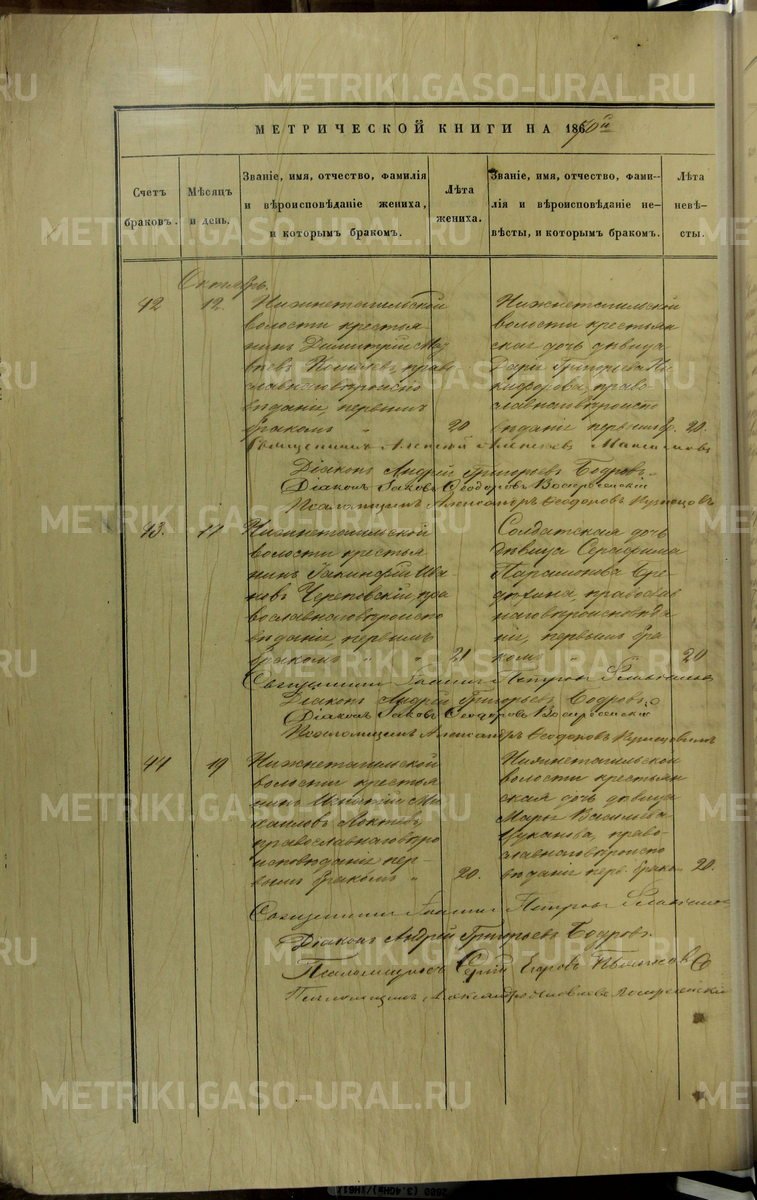 METRIKI.GASO-URAL.RU
МЕТРИЧЕСКОЙ КНИГИ НА 1870й
Счетъ браковъ.
Мѣсяцъ и день.
Званіе, имя, отчество, фамилія
и вѣроисповѣданіе жениха,
и которымъ бракомъ.
Лѣта жениха.
Званіе, имя, отчество, фами-
лія и вѣроисповѣданіе не-
вѣсты, и которымъ бракомъ.
Лѣта невѣ-
сты.
Октябрь.
42 12 Нижнетагильской
волости крестья-
нинъ Димитрій
православнаго вѣроиспо
вѣданія, первымъ
бракомъ 20
Нижнетагильской
волости крестьян
ская дочь дѣвица
Дарья Григорьева Ни
кифорова, право
славнаго вѣроиспо
вѣданія первымъ бр. 20.
Священникъ Алексій Алексѣевъ
Діаконъ Андрей Григорьевъ Бодровъ.
Діаконъ Іаковъ Ѳеодоровъ Воскресенскій
Псаломщикъ Александръ Кузнецовъ
43. 11 Нижнетагильской
волости крестья
нинъ Ива
новъ пра
вославнаго вѣроиспо
вѣданія, первымъ
бракомъ 21
Солдатская дочь
дѣвица Серафима
Парамонова
православ
наго вѣроисповѣда
нія, первымъ бра
комъ 20
Священникъ Іоаннъ Петровъ
Діаконъ Андрей Григорьевъ Бодровъ
Діаконъ Іаковъ Ѳеодоровъ Воскресенскій
Псаломщикъ Александръ
44 19 Нижнетагильской
волости крестья
нинъ Игнатій Ми
хаиловъ Локтевъ,
православнаго вѣро
исповѣданія пер-
вымъ бракомъ 20.
Нижнетагильской
волости крестьян
ская дочь дѣвица
Марѳа Васильева
Цуканова, право
славнаго вѣроиспо
вѣданія перв. брако 20.
Священникъ Іоаннъ Петровъ
Діаконъ Андрей Григорьевъ Бодровъ.
Псаломщикъ Сергій Егоровъ
Псаломщикъ Александръ Яковлевъ Воскресенскій